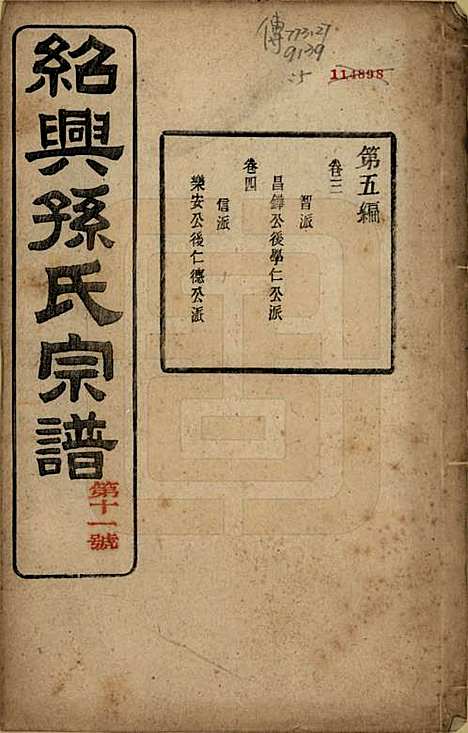 傳 773.27
9139
:5
114898
第五編
卷三
智派
昌鐸公後學仁公派
卷四
信派
樂安公後仁德公派
紹興孫氏宗譜
第十一號